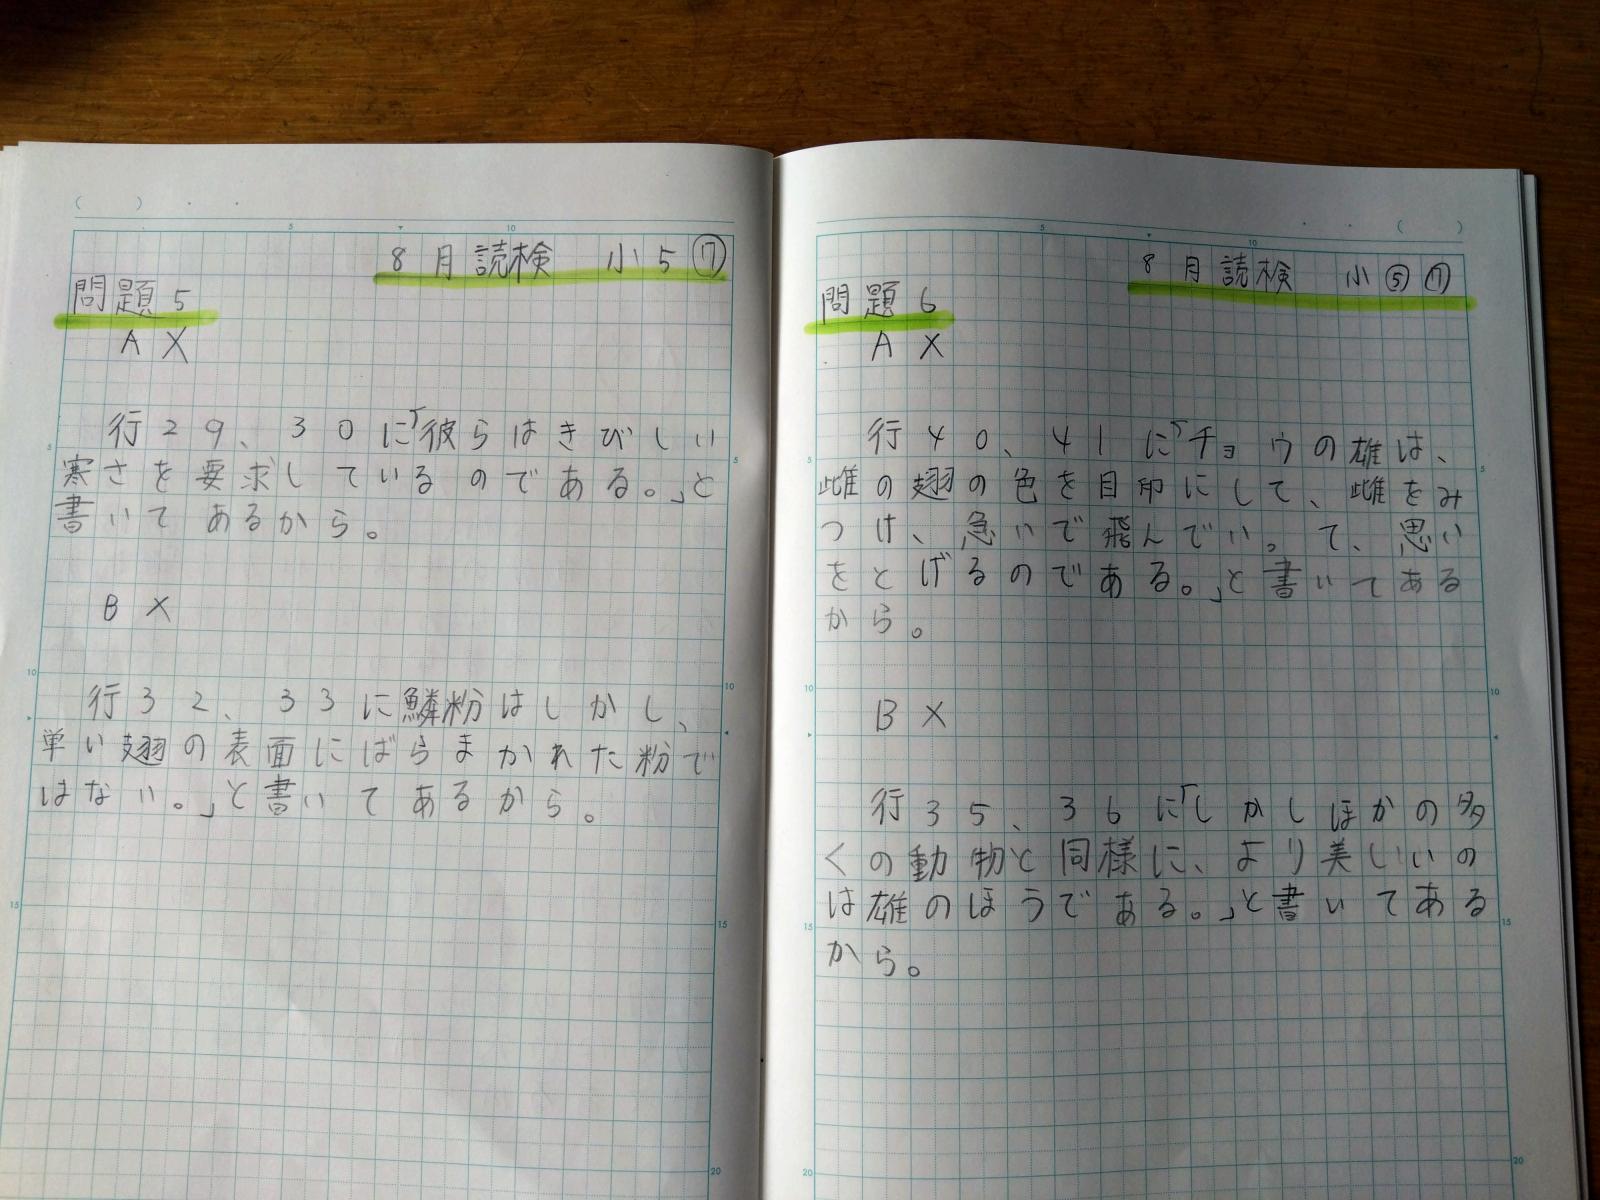 8月読検 小5⑰
問題5
A X
行29、30に「彼らはきびしい
寒さを要求しているのである。」と
書いてあるから。
B X
行32、33に鱗粉はしかし、
単い翅の表面にばらまかれた粉で
はない。」と書いてあるから。
8月読検 小⑤⑰
問題6
A X
行40、41に「チョウの雄は、
雌の翅の色を目印にして、雌をみ
つけ、急いで飛んでい。て、思い
をとげるのである。」と書いてある
から。
B X
行35、36に「しかしほかの多
くの動物と同様に、より美しいの
は雄のほうである。」と書いてある
から。
5
10
5
5
10
10
15
15
20
5
10
5
5
10
10
15
15
20
20